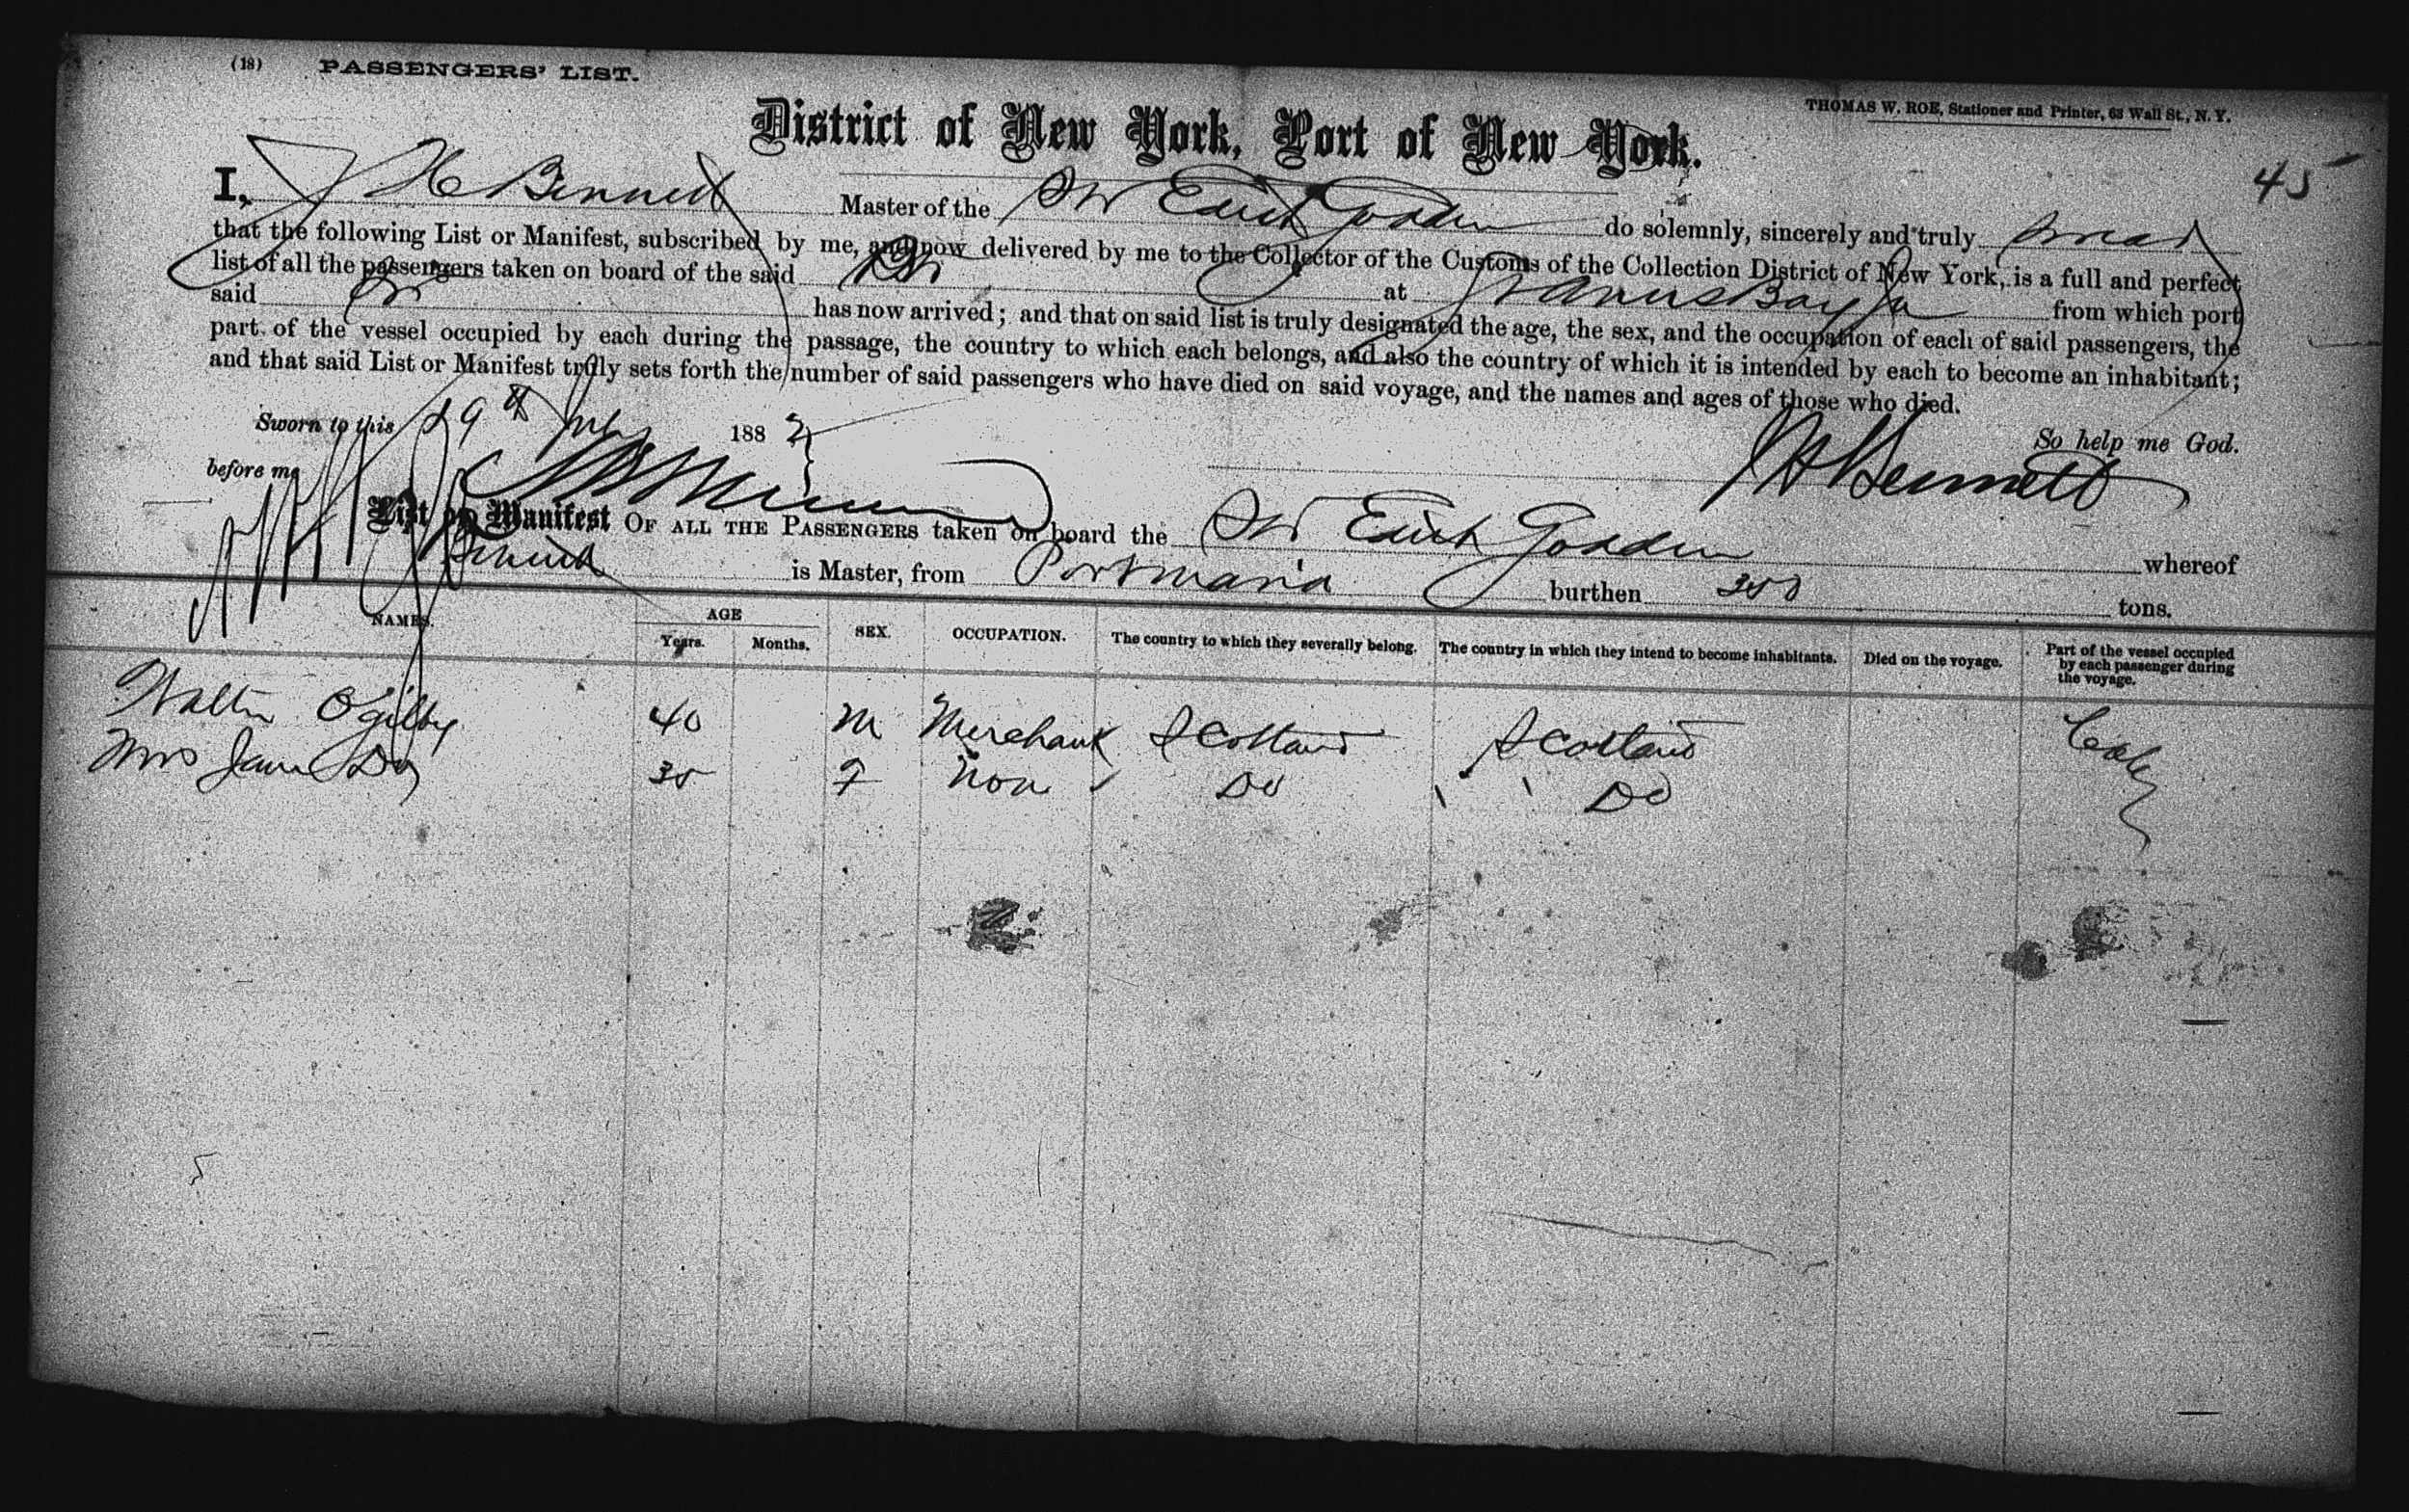 (18) PASSENGERS' LIST.
THOMAS W. ROE, Stationer and Printer, 63 Wall St., N. Y.
District of New York, Port of New York.
45
I, J H Bennett Master of the Str Edith Godden do solemnly, sincerely and truly swear
that the following List or Manifest, subscribed by me, and now delivered by me to the Collector of the Customs of the Collection District of New York, is a full and perfect
list of all the passengers taken on board of the said Str at Bay Ja from which port
said Str has now arrived; and that on said list is truly designated the age, the sex, and the occupation of each of said passengers, the
part of the vessel occupied by each during the passage, the country to which each belongs, and also the country of which it is intended by each to become an inhabitant;
and that said List or Manifest truly sets forth the number of said passengers who have died on said voyage, and the names and ages of those who died.
Sworn to this 29th July 1882 So help me God.
before me J H Bennett
List or Manifest OF ALL THE PASSENGERS taken on board the Str Edith Godden whereof
Bennett is Master, from Portmaria burthen 350 tons.
NAMES. AGE Years. Months. SEX. OCCUPATION. The country to which they severally belong. The country in which they intend to become inhabitants. Died on the voyage. Part of the vessel occupied by each passenger during the voyage.
Walter Ogilby 40 M Merchant Scotland Scotland
Mrs Jane Do 35 F Non Do Do